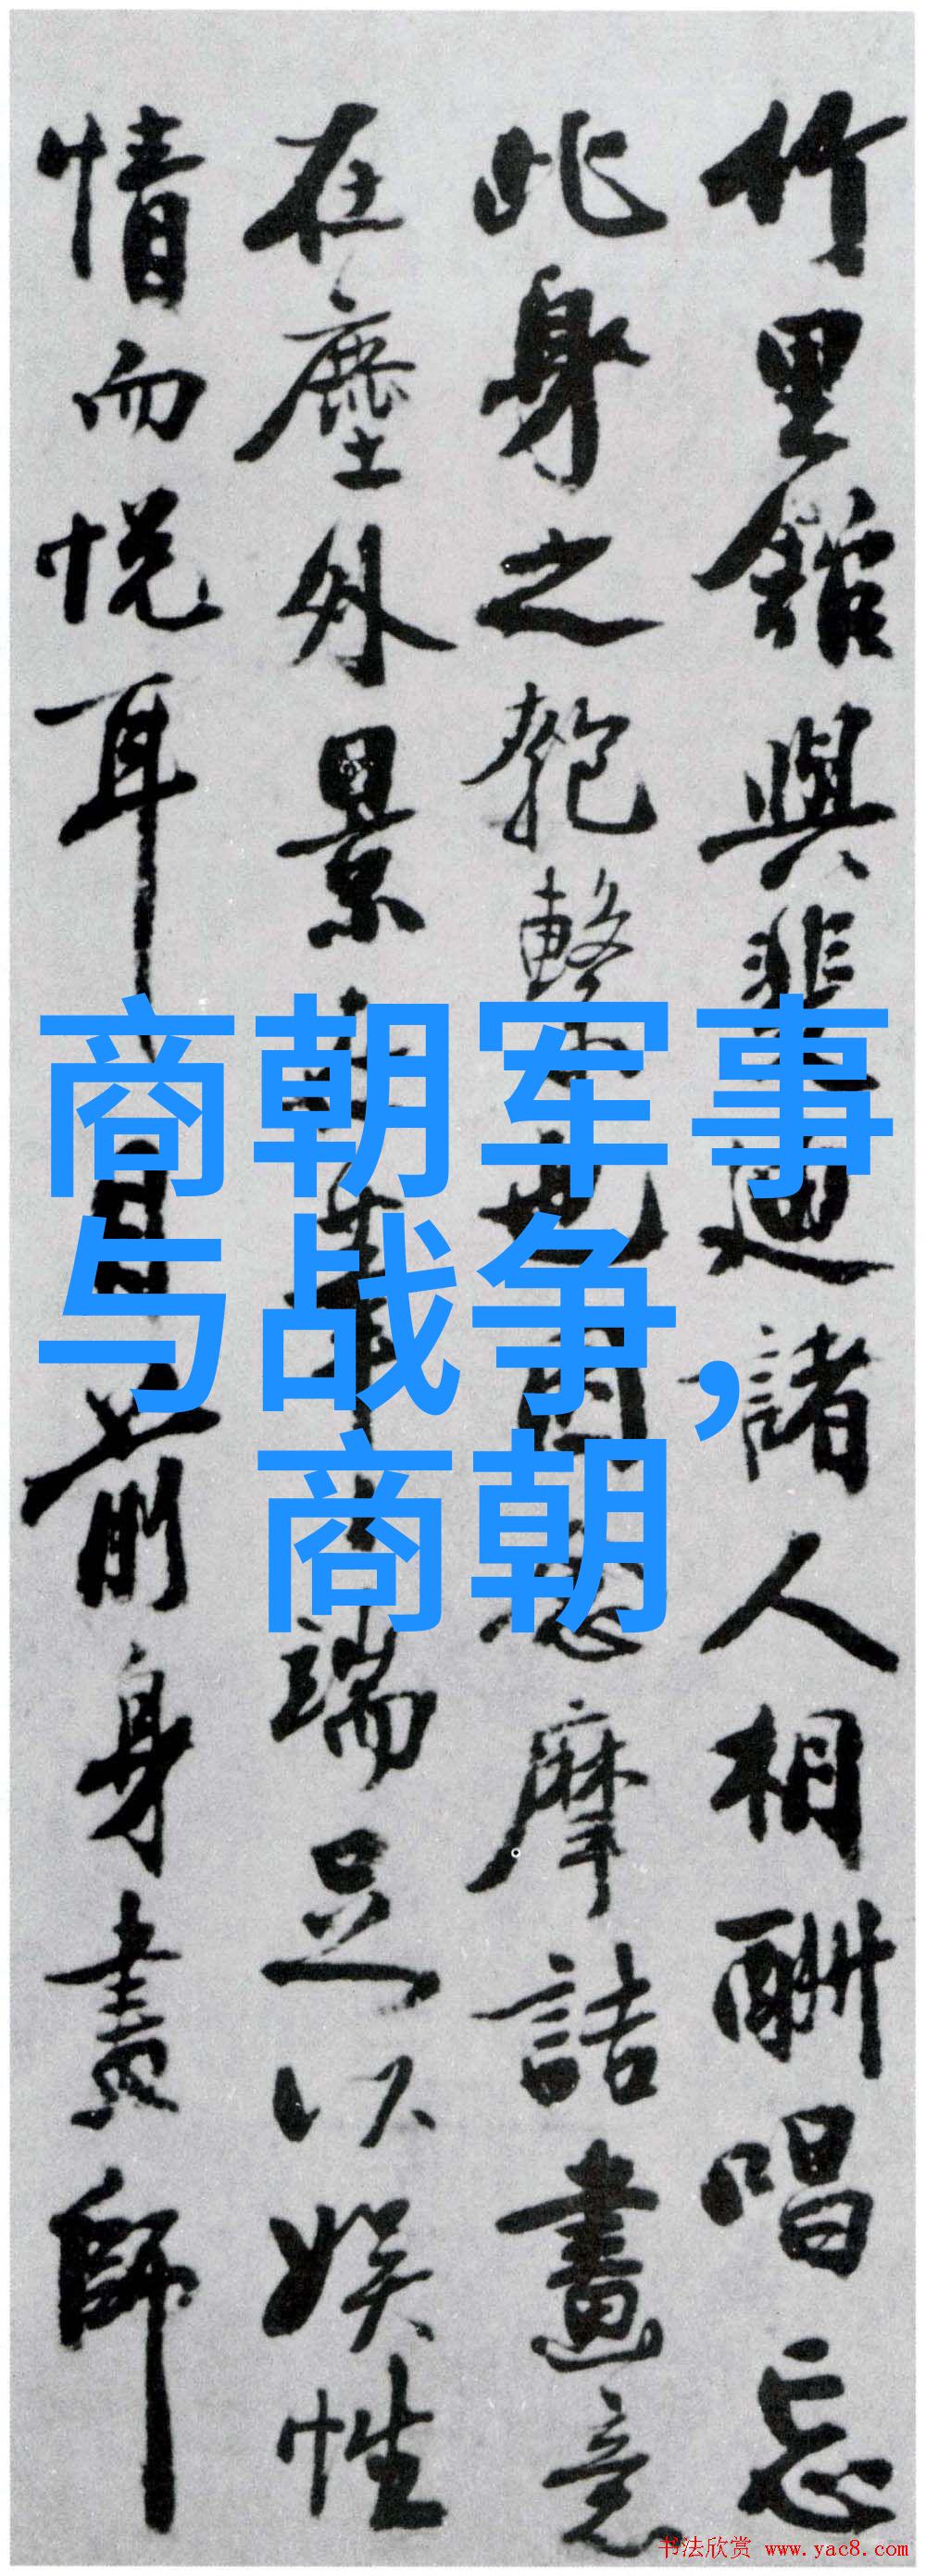 竹里館與裴迪諸人相酬唱忘
此身之匏繫也因忽摩詰畫意
在塵外景端足以娛性
情而悦耳目前身畫師
商朝军事
与战争，
商朝
书法欣赏 www.yac8.com